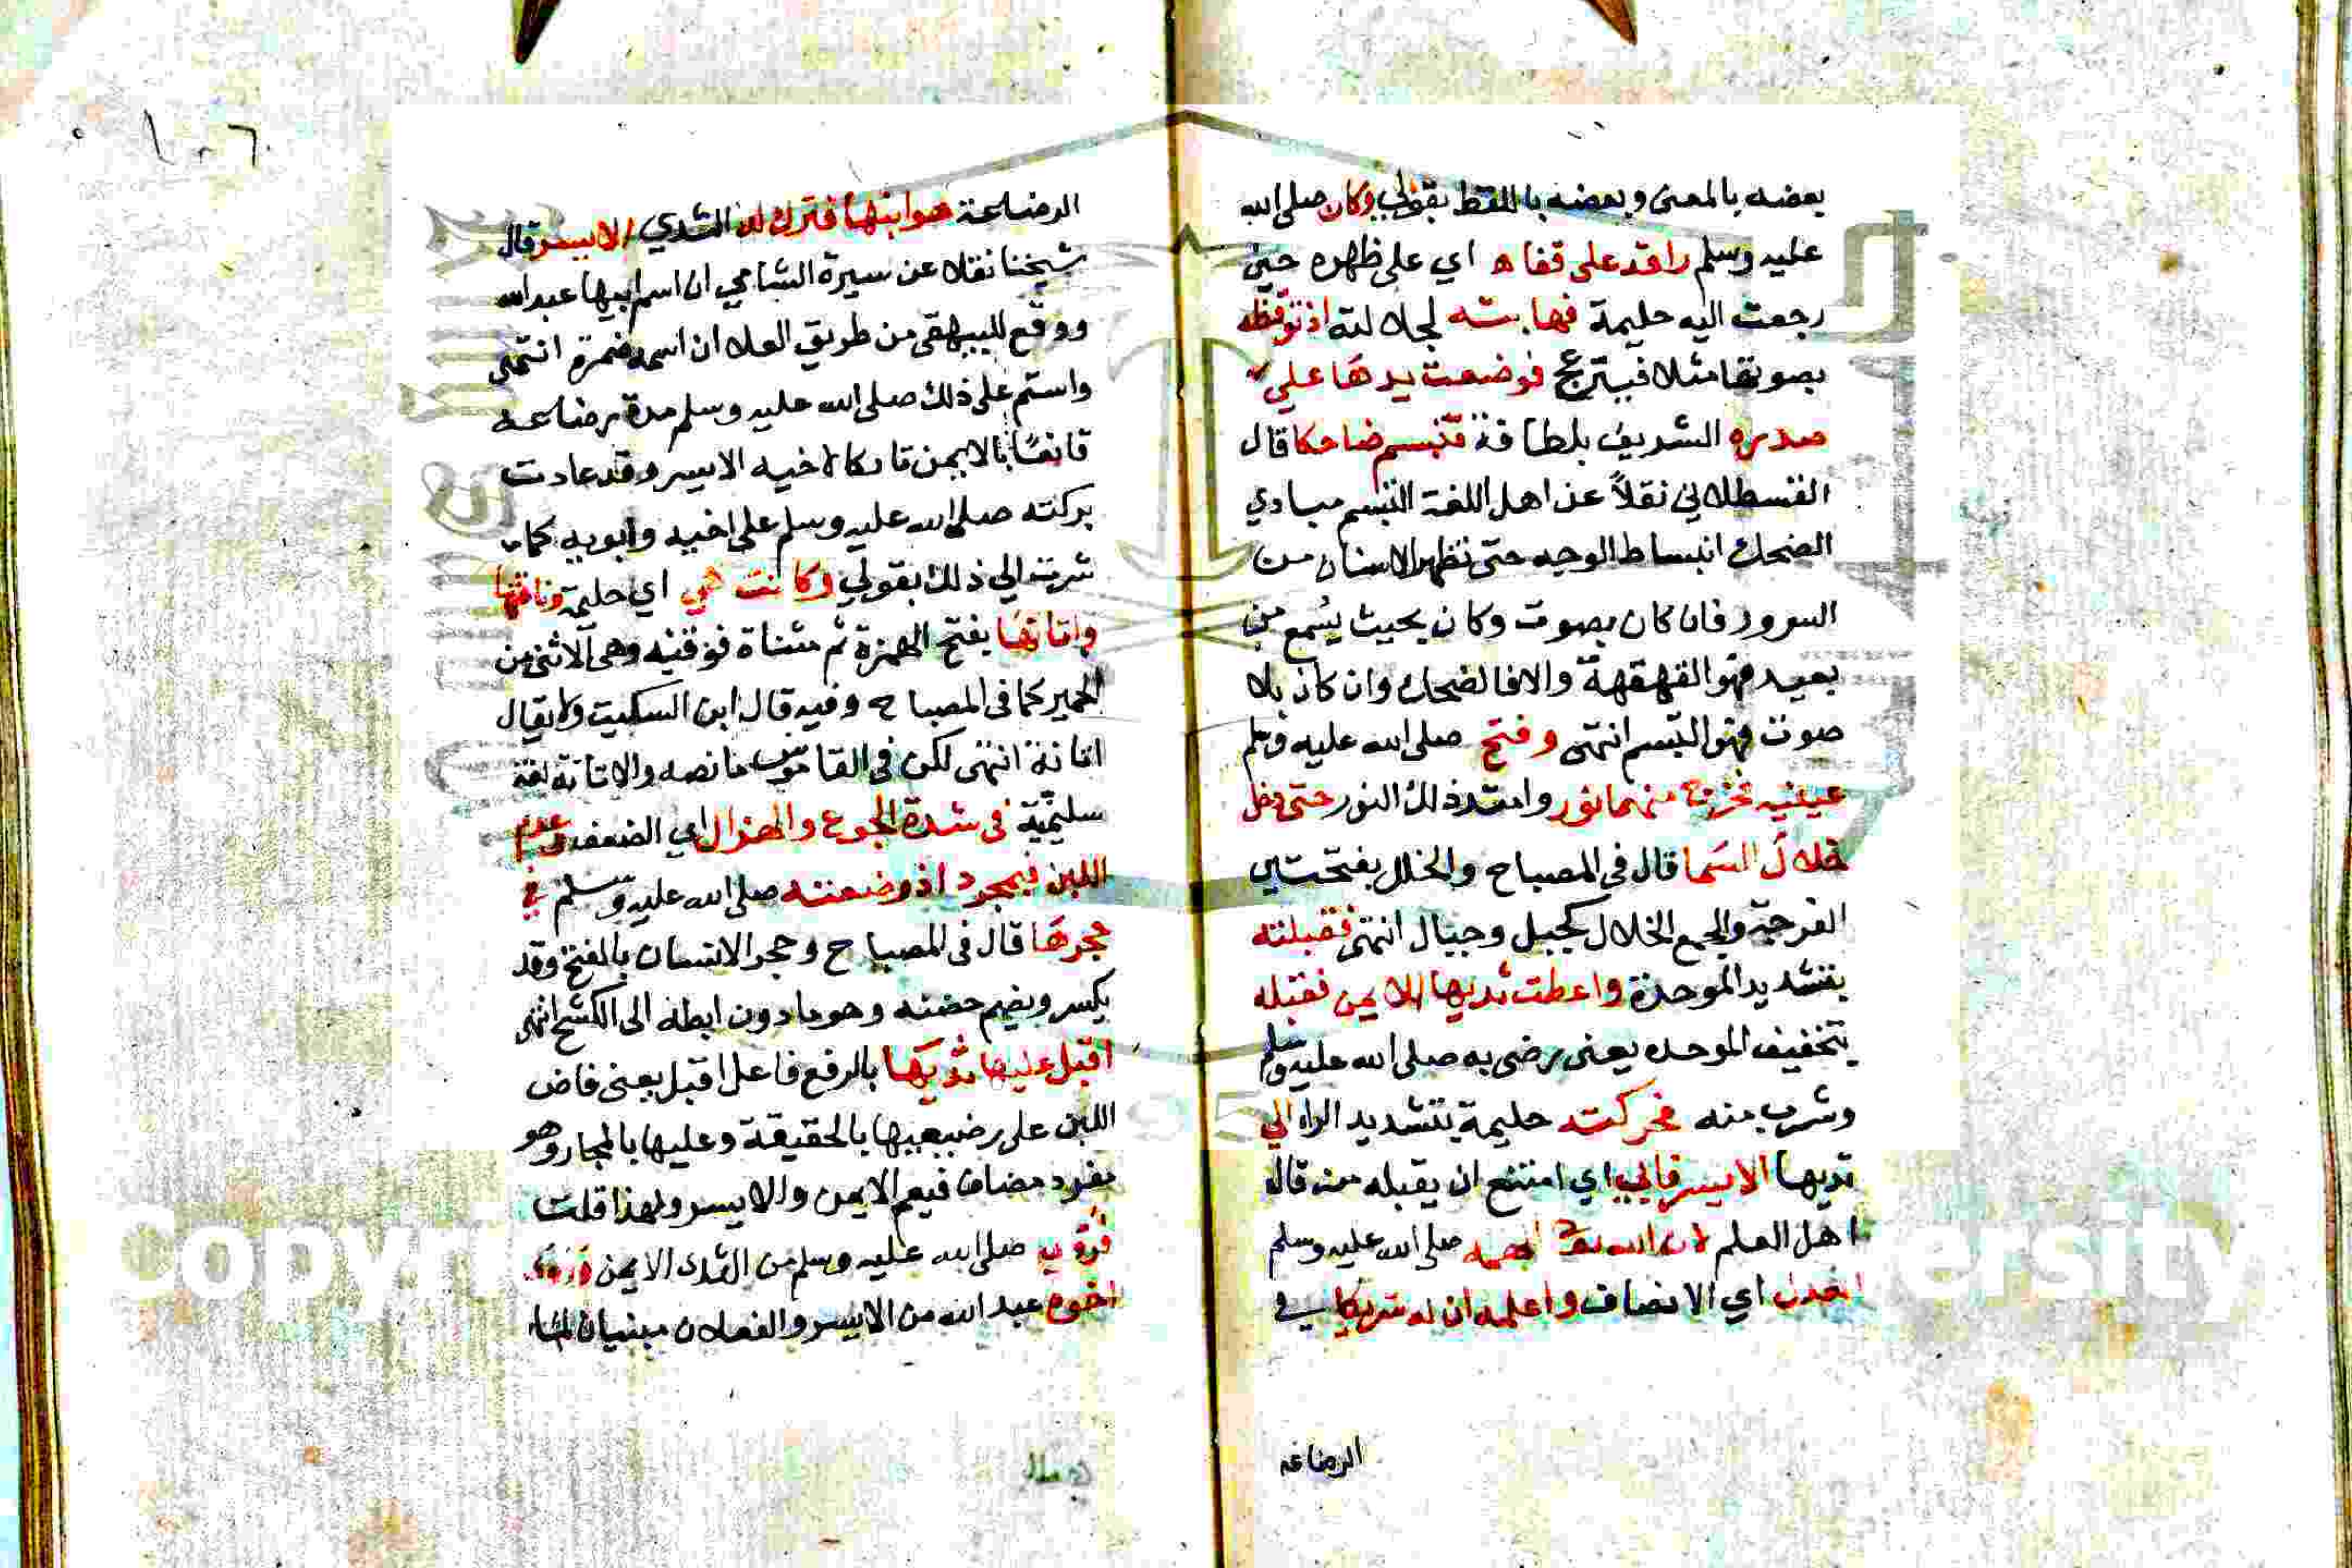 بعضه بالمعنى وبعضه باللفظ بقولي وكان صلى الله
عليه وسلم راقد على قفاه اي على ظهره حين
رجعت اليه حليمة فهابته لجلالته اذ توقظه
بصوتها مثلا فينزعج فوضعت يدها على
صدره الشريف بلطافة فتبسم ضاحكا قال
القسطلاني نقلاً عن اهل اللغة التبسم مبادي
الضحك انبساط الوجه حتى تظهر الاسنان من
السرور فان كان بصوت وكان بحيث يسمع من
بعيد فهو القهقهة والا فالضحك وان كان بلا
صوت فهو التبسم انتهى وفتح صلى الله عليه وسلم
عينيه فخرج منهما نور وامتد ذلك النور حتى دخل
خلال السما قال في المصباح والخلل بفتحتين
الفرجة والجمع الخلال كجبل وجبال انتهى فقبلته
بتشديد الموحدة واعطت ثديها الايمن فقبله
بتخفيف الموحده يعنى رضى به صلى الله عليه وسلم
وشرب منه فحركت حليمة بتشديد الراء الي
ثديها الايسر فابي اي امتنع ان يقبله منه قال
اهل العلم لان الله الهمه صلى الله عليه وسلم
العدل اي الانصاف واعلمه ان له شريكا في
الرضاعه
١٠٦
الرضاعة هو ابنها فترك له الثدي الايسر قال
شيخنا نقلا عن سيرة الشامي ان اسم ابيها عبد الله
ووقع للبيهقي من طريق العلا ان اسمه ضمرة انتهى
واستمر على ذلك صلى الله عليه وسلم مدة رضاعه
قانعًا بالايمن تاركا لاخيه الايسر وقد عادت
بركته صلى الله عليه وسلم على اخيه وابويه كما
شرت الي ذلك بقولي وكانت هي اي حليمة وناقتها
واتانها بفتح الهمزة ثم مثناة فوقيه وهى الانثى من
الحمير كما فى المصباح وفيه قال ابن السكيت ولا يقال
اتانة انتهى لكن في القاموس ما نصه والاتانة لغة
سليمية فى شدة الجوع والهزال اي الضعف وعدم
اللبن فبمجرد اذ وضعته صلى الله عليه وسلم في
حجرها قال فى المصباح وحجر الانسان بالفتح وقد
يكسر ويضم حضنه وهو ما دون ابطه الى الكشح انتهى
اقبل عليها ثديها بالرفع فاعل اقبل يعنى فاض
اللبن على رضيعيها بالحقيقة وعليها بالمجاز وهو
مفرد مضاف فيعم الايمن والايسر ولهذا قلت
فروي صلى الله عليه وسلم من الثدى الايمن وروى
اخوه عبد الله من الايسر والفعلان مبنيان